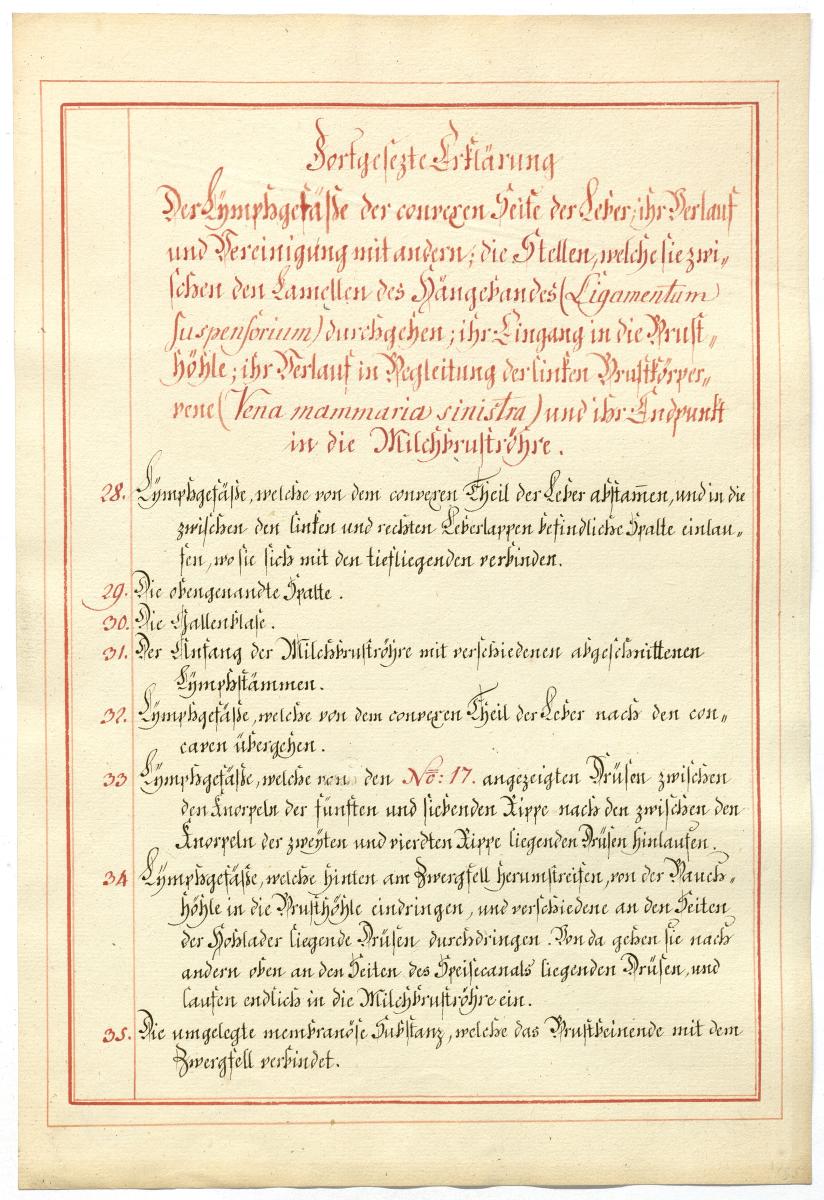 Fortgesezte Erklärung
Der Lymphgefäße der convexen Seite der Leber; ihr Verlauf
und Vereinigung mit andern; die Stellen, welche sie zwi„
schen den Lamellen des Hängebandes (Ligamentum
suspensorium) durchgehen; ihr Eingang in die Brust„
höhle; ihr Verlauf in Begleitung der linken Brustkörper„
vene (Vena mammaria sinistra) und ihr Endpunkt
in die Milchbruströhre.
28. Lymphgefäße, welche von dem convexen Theil der Leber abstam̄en, und in die
zwischen den linken und rechten Leberlappen befindliche Spalte einlau„
fen, wo sie sich mit den tiefliegenden verbinden.
29. Die obengenandte Spalte.
30. Die Gallenblase.
31. Der Anfang der Milchbruströhre mit verschiedenen abgeschnittenen
Lymphstämmen.
32. Lymphgefäße, welche von dem convexen Theil der Leber nach den con„
caven übergehen.
33 Lymphgefäße, welche von den No: 17. angezeigten Drüsen zwischen
den Knorpeln der fünften und siebenden Rippe nach den zwischen den
Knorpeln der zweyten und vierdten Rippe liegenden Drüsen hinlaufen.
34 Lymphgefäße, welche hinten am Zwergfell herumstreifen, von der Bauch„
höhle in die Brusthöhle eindringen, und verschiedene an den Seiten
der Hohlader liegende Drüsen durchdringen. Von da gehen sie nach
andern oben an den Seiten des Speisecanals liegenden Drüsen, und
laufen endlich in die Milchbruströhre ein.
35. Die umgelegte membranöse Substanz, welche das Brustbeinende mit dem
Zwergfell verbindet.